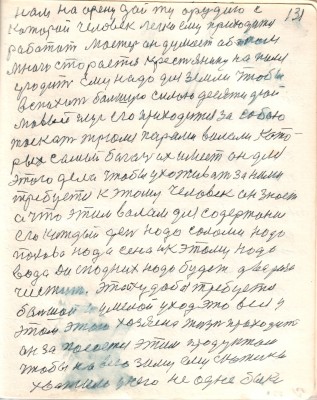 131
нам на орену дай ту орудию с
которай человек легко ему приходити
работат мастер он думает об
много старается крестянину на ниви
угодит ему надо для земли чтобы
вспахат балшую силою десяти дней
ево приходится за собою
таскат трома парами валами кото
рых самый багач их имеет он для
этого дела чтобы ухаживат за ними
требуется к этому человек он знает
а что этим валам для содержани
его каждый ден надо соломи надо
полова нада сена и к этому надо
вода он сподних надо будет два раза
чистит. Этому добы требуется
балшой умелой уход это все у
этом этого хозяена приходит
он за этим продуктом
чтобы на всю зиму ему скотине
хватило у него не одне быки